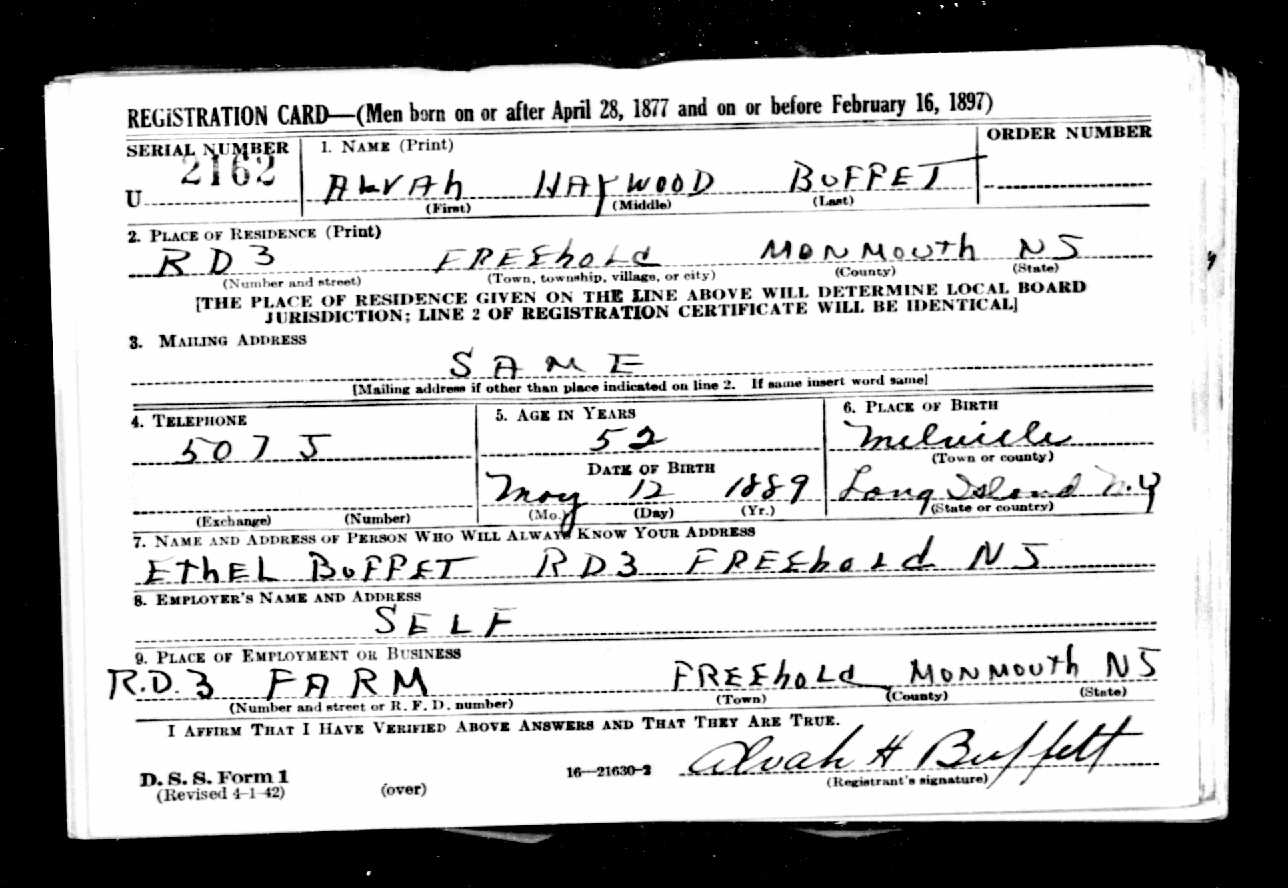 REGISTRATION CARD—(Men born on or after April 28, 1877 and on or before February 16, 1897)
SERIAL NUMBER 1. NAME (Print) ORDER NUMBER
U 2162 ALVAh HAYWOOD BUFFET
(First) (Middle) (Last)
2. PLACE OF RESIDENCE (Print)
RD3 FREEhoLd MONMOUTh NJ
(Number and street) (Town, township, village, or city) (County) (State)
[THE PLACE OF RESIDENCE GIVEN ON THE LINE ABOVE WILL DETERMINE LOCAL BOARD
JURISDICTION; LINE 2 OF REGISTRATION CERTIFICATE WILL BE IDENTICAL]
3. MAILING ADDRESS
SAME
[Mailing address if other than place indicated on line 2. If same insert word same]
4. TELEPHONE 5. AGE IN YEARS 6. PLACE OF BIRTH
507 J 52 Melville
(Town or county)
DATE OF BIRTH
May 12 1889 Long Island N.Y
(Exchange) (Number) (Mo.) (Day) (Yr.) (State or country)
7. NAME AND ADDRESS OF PERSON WHO WILL ALWAYS KNOW YOUR ADDRESS
EThEL BUFFET RD3 FREEhoLd NJ
8. EMPLOYER'S NAME AND ADDRESS
SELF
9. PLACE OF EMPLOYMENT OR BUSINESS
R.D.3 FARM FREEhoLd MONMOUTh NJ
(Number and street or R. F. D. number) (Town) (County) (State)
I AFFIRM THAT I HAVE VERIFIED ABOVE ANSWERS AND THAT THEY ARE TRUE.
Alvah H Buffett
D. S. S. Form 1 16—21630-2 (Registrant's signature)
(Revised 4-1-42) (over)